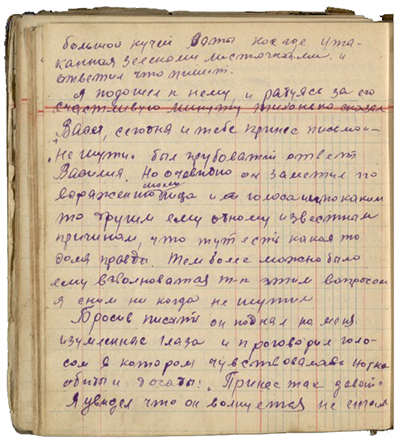 большой кучей ваты кое где ута-
канная зелеными листочками, и
ответил что пишет.
Я подошел к нему, и радуясь за его
счастливую минуту тихонько сказал
Вася, сегодня и тебе принес письмо –
"Не шути" был грубоватый ответ
Василия. Но очевидно он заметил по
выражению моего лица и голоса или по каким
то другим ему одному известным
причинам, что тут есть какая то
доля правды. Тем более можно было
ему взволноватся т-к этим вопросом
я с ним ни когда не шутил
Бросив писать он поднял на меня
изумленные глаза и проговорил голо-
сом в котором чувствовалась нотка
обиды и досады: "Принес так давай"
Я увидел что он волнуется не стал